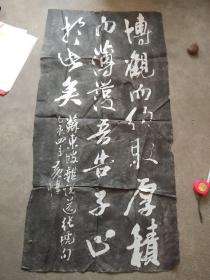 博觀而約取厚積
而薄發吾告子止
於此矣
蘇東坡雜說送張琥句